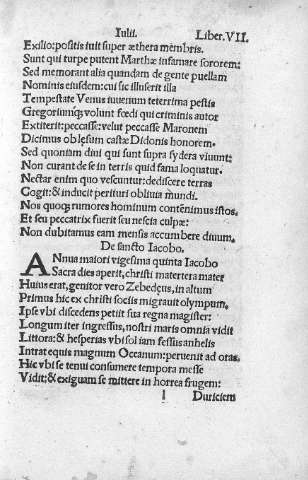 Iulii. Liber. VII.
Exilio: positis iuit super æthera membris.
Sunt qui turpe putent Marthæ infamare sororem:
Sed memorant alia quandam de gente puellam
Nominis eiusdem: cui sic illuserit illa
Tempestate Venus iuuenum teterrima pestis
Gregoriumq; volunt fœdi qui criminis autor
Extiterit: peccasse: velut peccasse Maronem
Dicimus oblęsum castæ Didonis honorem.
Sed quoniam diui qui sunt supra sydera viuunt:
Non curant de se in terris quid fama loquatur.
Nectar enim quo vescuntur: dediscere terras
Cogit: & inducit perituri obliuia mundi.
Nos quoq; rumores hominum contēnimus istos.
Et seu peccatrix fuerit seu nescia culpæ:
Non dubitamus eam mensis accumbere diuum.
De sancto Iacobo.
ANnua maiori vigesima quinta Iacobo
Sacra dies aperit, christi matertera mater
Huius erat, genitor vero Zebedęus, in altum
Primus hic ex christi sociis migrauit olympum.
Ipse vbi discedens petiit sua regna magister:
Longum iter ingressus, nostri maris omnia vidit
Littora: & hesperias vbi sol iam fessus anhelis
Intrat equis magnum Oceanum: peruenit ad oras.
Hic vbi se tenui consumere tempora messe
Vidit: & exiguam se mittere in horrea frugem:
l Duriciem